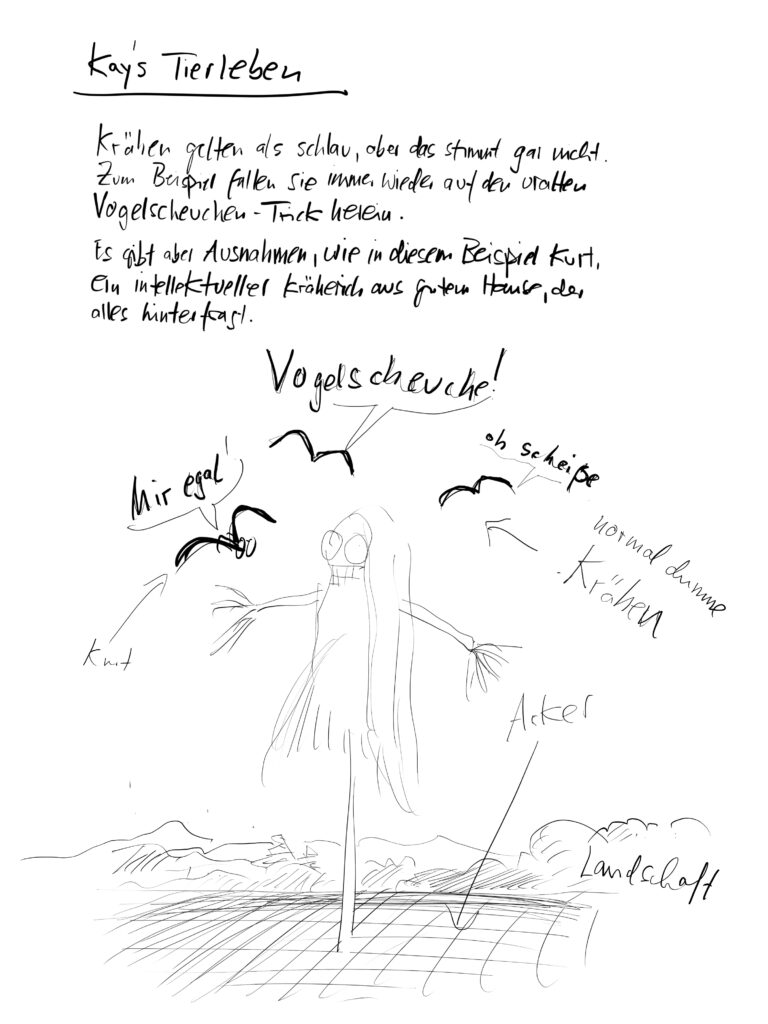 Kay's Tierleben
Krähen gelten als schlau, aber das stimmt gar nicht.
Zum Beispiel fallen sie immer wieder auf den uralten
Vogelscheuchen-Trick herein.
Es gibt aber Ausnahmen, wie in diesem Beispiel Kurt,
ein intellektueller Kräherich aus gutem Hause, der
alles hinterfragt.
Vogelscheuche!
oh scheiße
Mir egal!
normal dumme
Krähen
Kurt
Acker
Landschaft